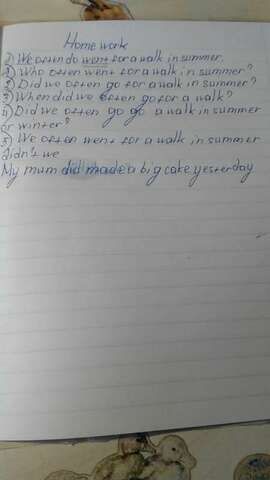 Home work
1) We often do went for a walk in summer.
1) Who often went for a walk in summer?
2) Did we often go for a walk in summer?
3) When did we often go for a walk?
4) Did we often go go a walk in summer
or winter?
5) We often went for a walk in summer
didn't we
My mum did made a big cake yesterday